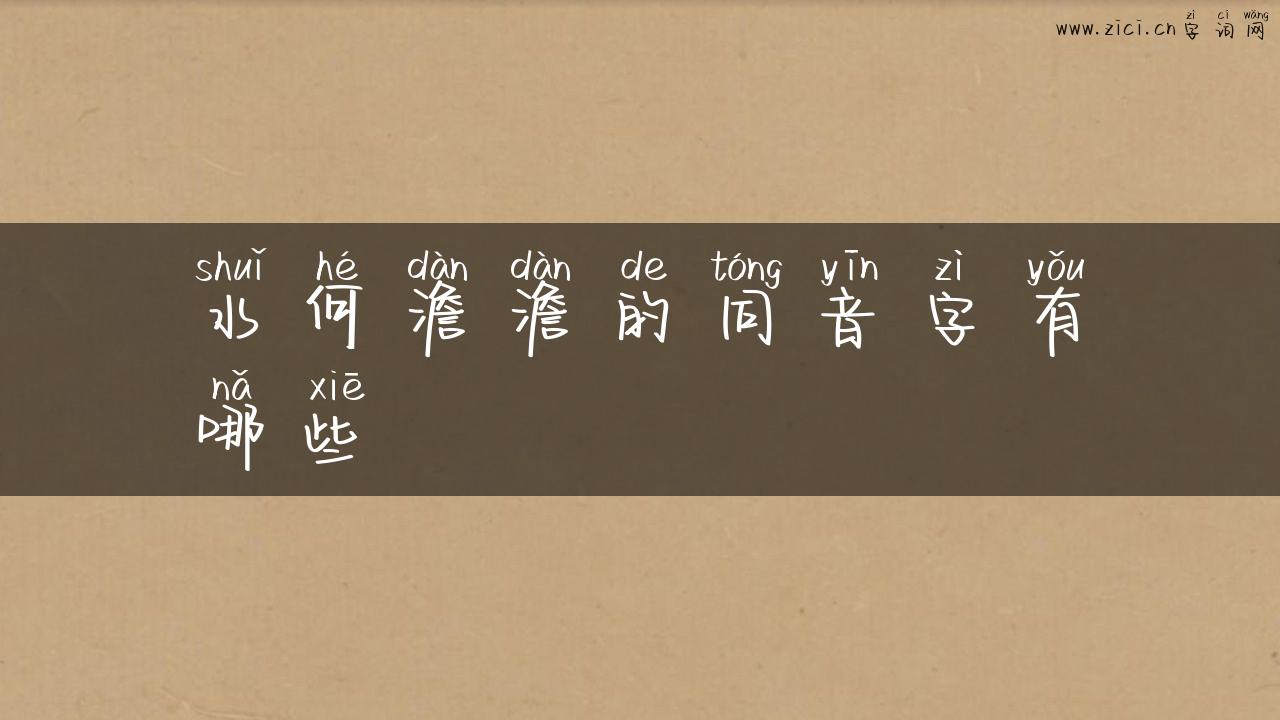 zì cí wǎng
www.zici.cn 字 词 网
shuǐ hé dàn dàn de tóng yīn zì yǒu
水 何 澹 澹 的 同 音 字 有
nǎ xiē
哪 些